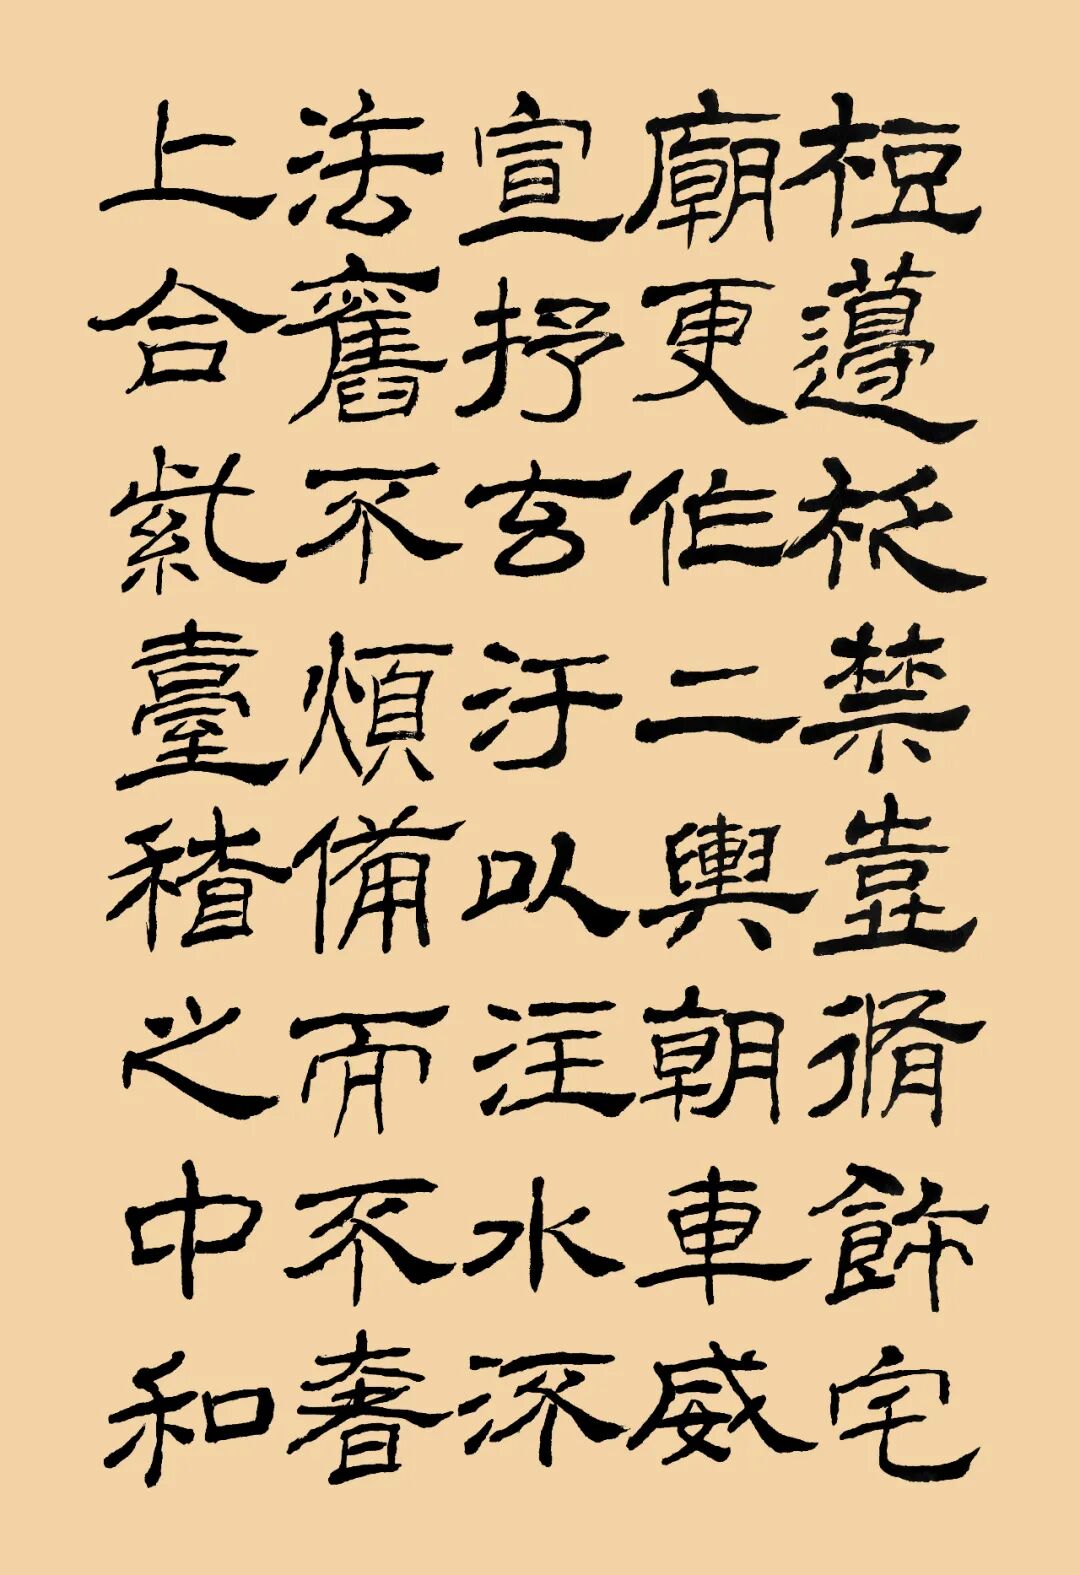 梪籩柉禁壺脩飾宅
廟更作二輿朝車威
宣抒玄汙以注水流
法舊不煩備而不奢
上合紫臺稽之中和